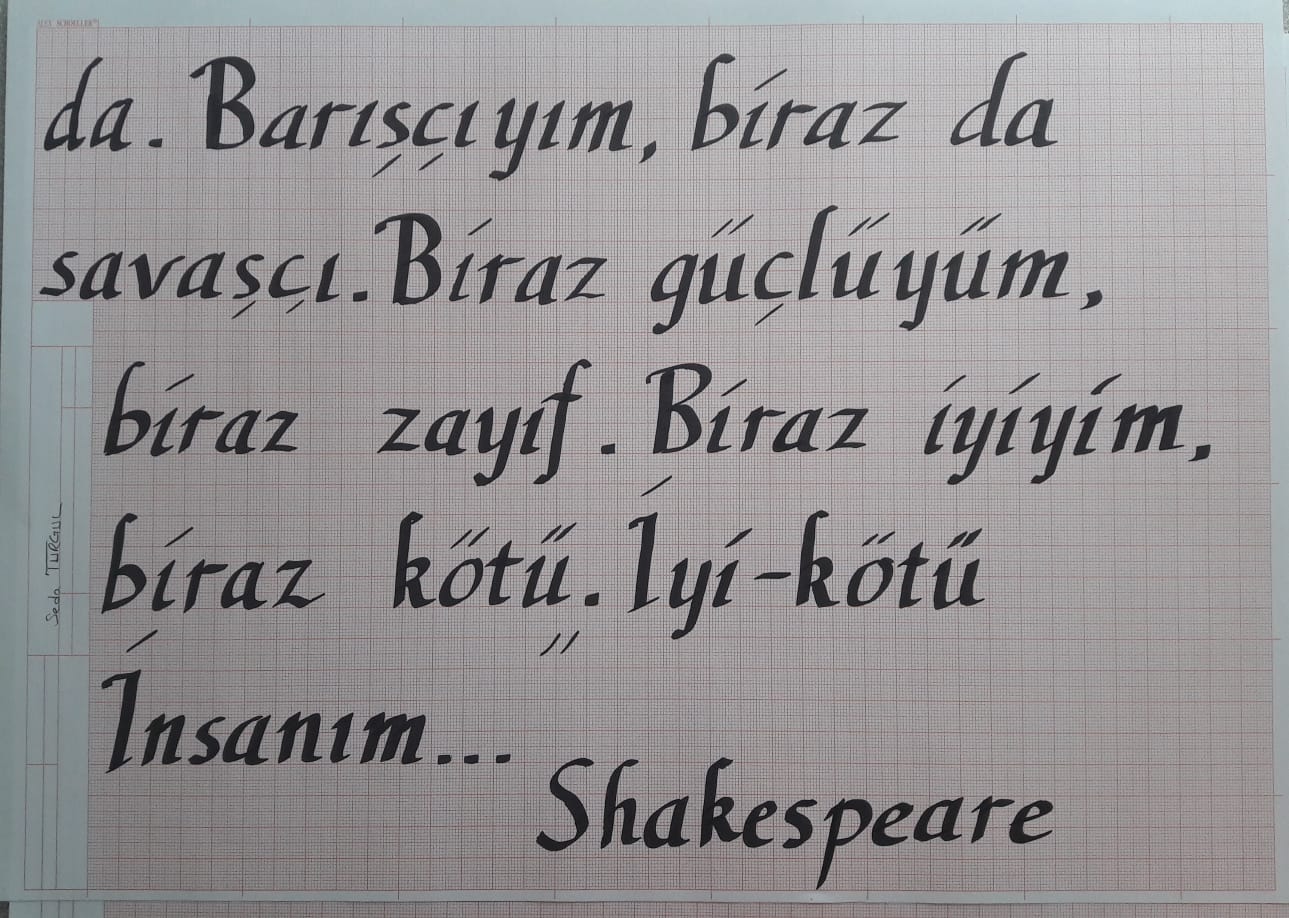 ALEX SCHOELLER
da. Barışçıyım, biraz da
savaşçı. Biraz güçlüyüm,
biraz zayıf. Biraz iyiyim,
biraz kötü. İyi-kötü
İnsanım...
Shakespeare
Seda TURGUL